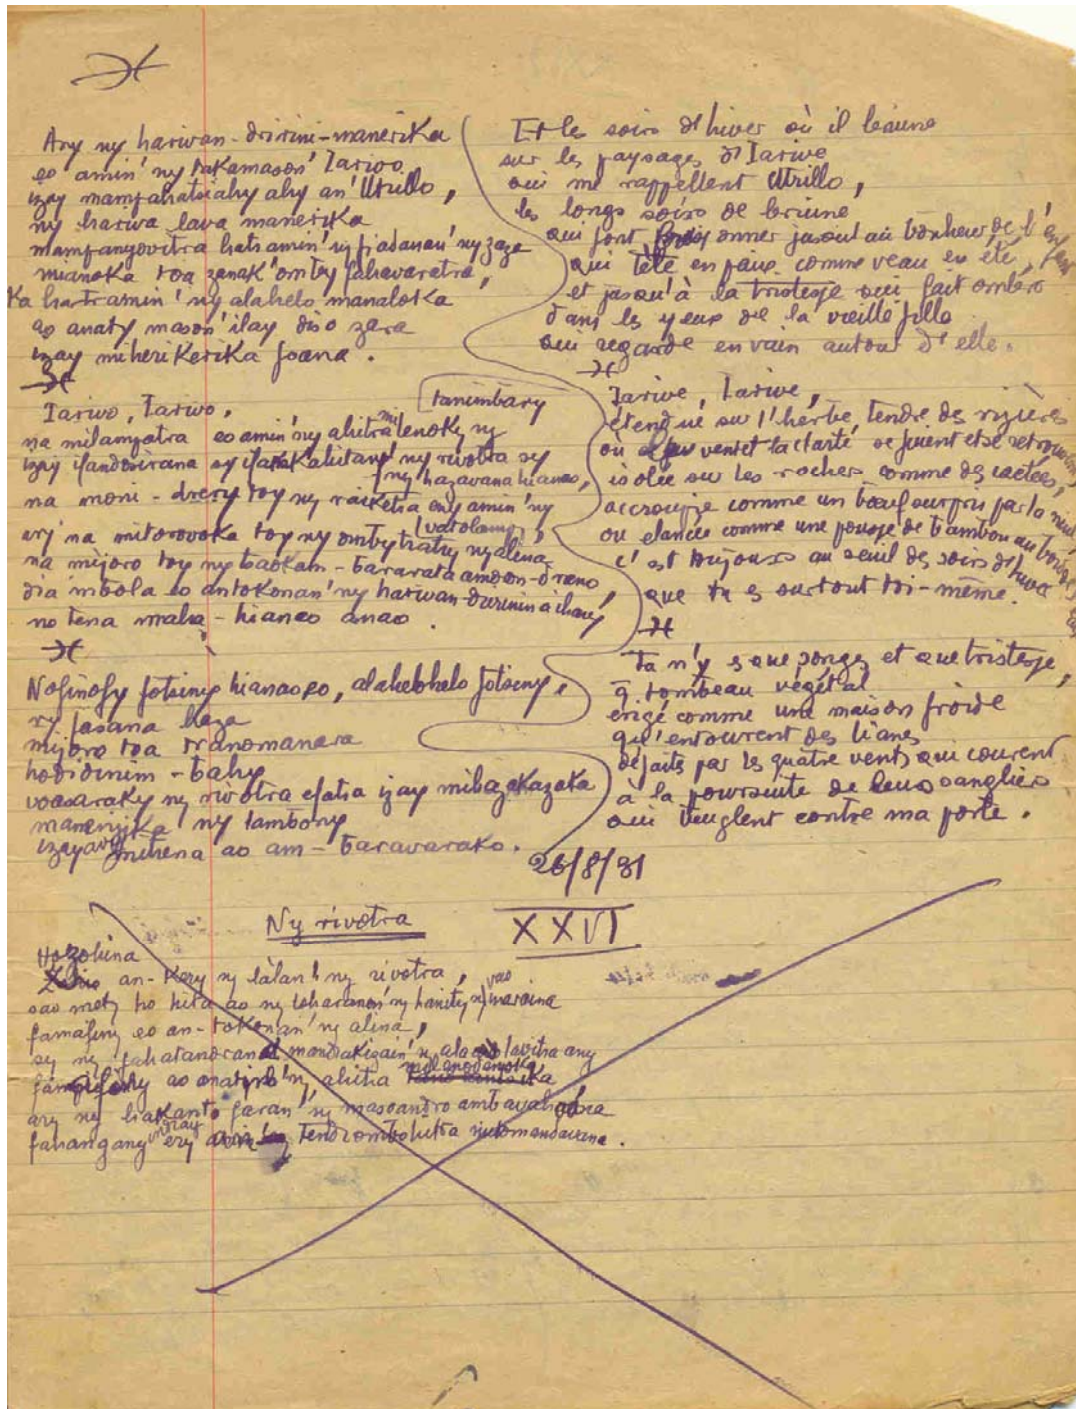 Ary ny harivan-dririnina-manerika
eo amin'ny takamason' Iarivo
izay mampahatsiahy ahy an' Utrillo,
ny hariva lava manerika
mampangovitra hatramin' ny fiadanan' ny zaza
minono toa zanak' omby fahavaratra,
ka hatramin' ny alahelo manaloka
ao anaty mason' ilay diso zara
izay miherikerika foana.
Iarivo, Iarivo,
tanimbary
na milamatra eo amin' ny ahitra malenoky ny
izay ifandosirana sy ny rivotra sy
ny hazavana hianao,
na moni-drery toy ny raiketa eny amin' ny
vatolamy,
ary na mitorovoka toy ny omby tratry ny alina
na mijoro toy ny baokam-bararata amoron-drano,
dia mbola eo an-tokonan' ny harivan-dririnina ihany
no tena maha-hianao anao.
Nofinofy fotsiny hianao eo, alahelohelo fotsiny,
ry fasana hazo
mijoro toa tranomanara
hodidinim-bahy
voasaraky ny rivotra efatra izay mihazakazaka
manenjika ny lambony
izay avy mitrena ao am-baravarako.
Et les soirs d'hiver où il bruine
sur les paysages d'Iarive
qui me rappellent Utrillo,
les longs soirs de bruine
qui font frissonner jusqu'au bonheur de l'enfant
qui tète en paix comme veau en été,
et jusqu'à la tristesse qui fait ombre
dans les yeux de la vieille fille
qui regarde en vain autour d'elle.
Iarive, Iarive,
étendue sur l'herbe tendre des rizières
où vent et la clarté se fuient et se retrouvent,
isolée sur les rochers comme des cactées,
accroupie comme un bœuf surpris par la nuit
ou élancée comme une pousse de bambou au bord des eaux
c'est toujours au seuil des soirs d'hiver
que tu es surtout toi-même.
Tu n'y es que songes et que tristesse,
ô tombeau végétal
érigé comme une maison froide
qu'entourent des lianes
défaits par les quatre vents qui courent
à la poursuite de leurs sangliers
qui beuglent contre ma porte.
26/8/31
Ny rivotra
XXVI
Hozohina
an-kery ny làlan' ny rivotra,
sao mety ho hita ao ny loharanon' ny hanitry ny vao maraina
famafiny eo an-tokonan' ny alina,
sy ny lavitra any
ao ny ahitra
ary ny hakanto faran' ny masoandro ambavahaona
fahangany indray ery